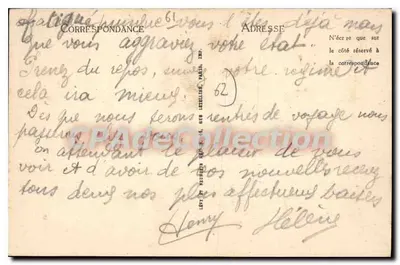 fatiguer puisque vous l'êtes déjà mais
CORRESPONDANCE
ADRESSE
que vous aggraviez votre état.
N'écrire que sur
le côté réservé à
la correspondance
Prenez du repos, votre régime et
cela ira mieux.
62
Dès que nous serons rentrés de voyage nous
CPACollection
En attendant le plaisir de vous
voir et d'avoir de vos nouvelles recevez
tous deux nos plus affectueux baisers
Henry Hélène